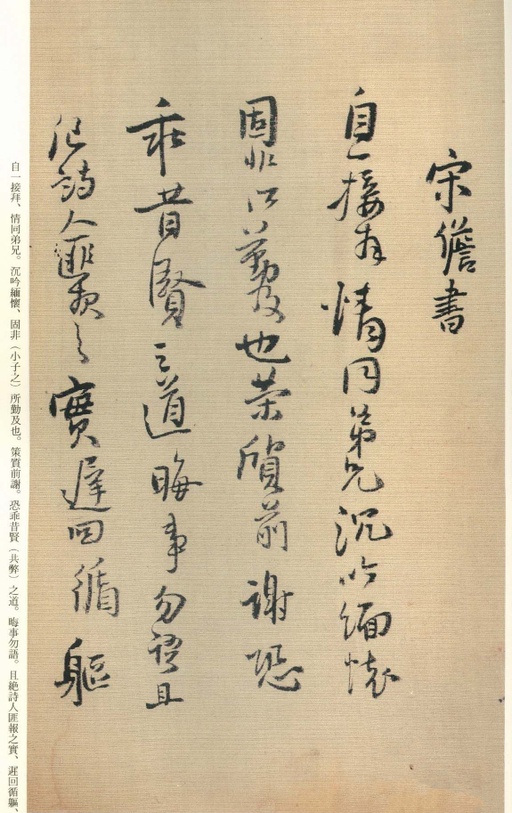 宋儋書
自一接拜情同弟兄沉吟緬懷
固非所勤及也榮頒前謝恐
乖昔賢之道晦事勿語且
絕詩人匪報之實遲回循軀
自一接拜、情同弟兄。沉吟緬懷、固非（小子之）所勤及也。策質前謝。恐乖昔賢（共弊）之道。晦事勿語。且絕詩人匪報之實、遲回循軀、